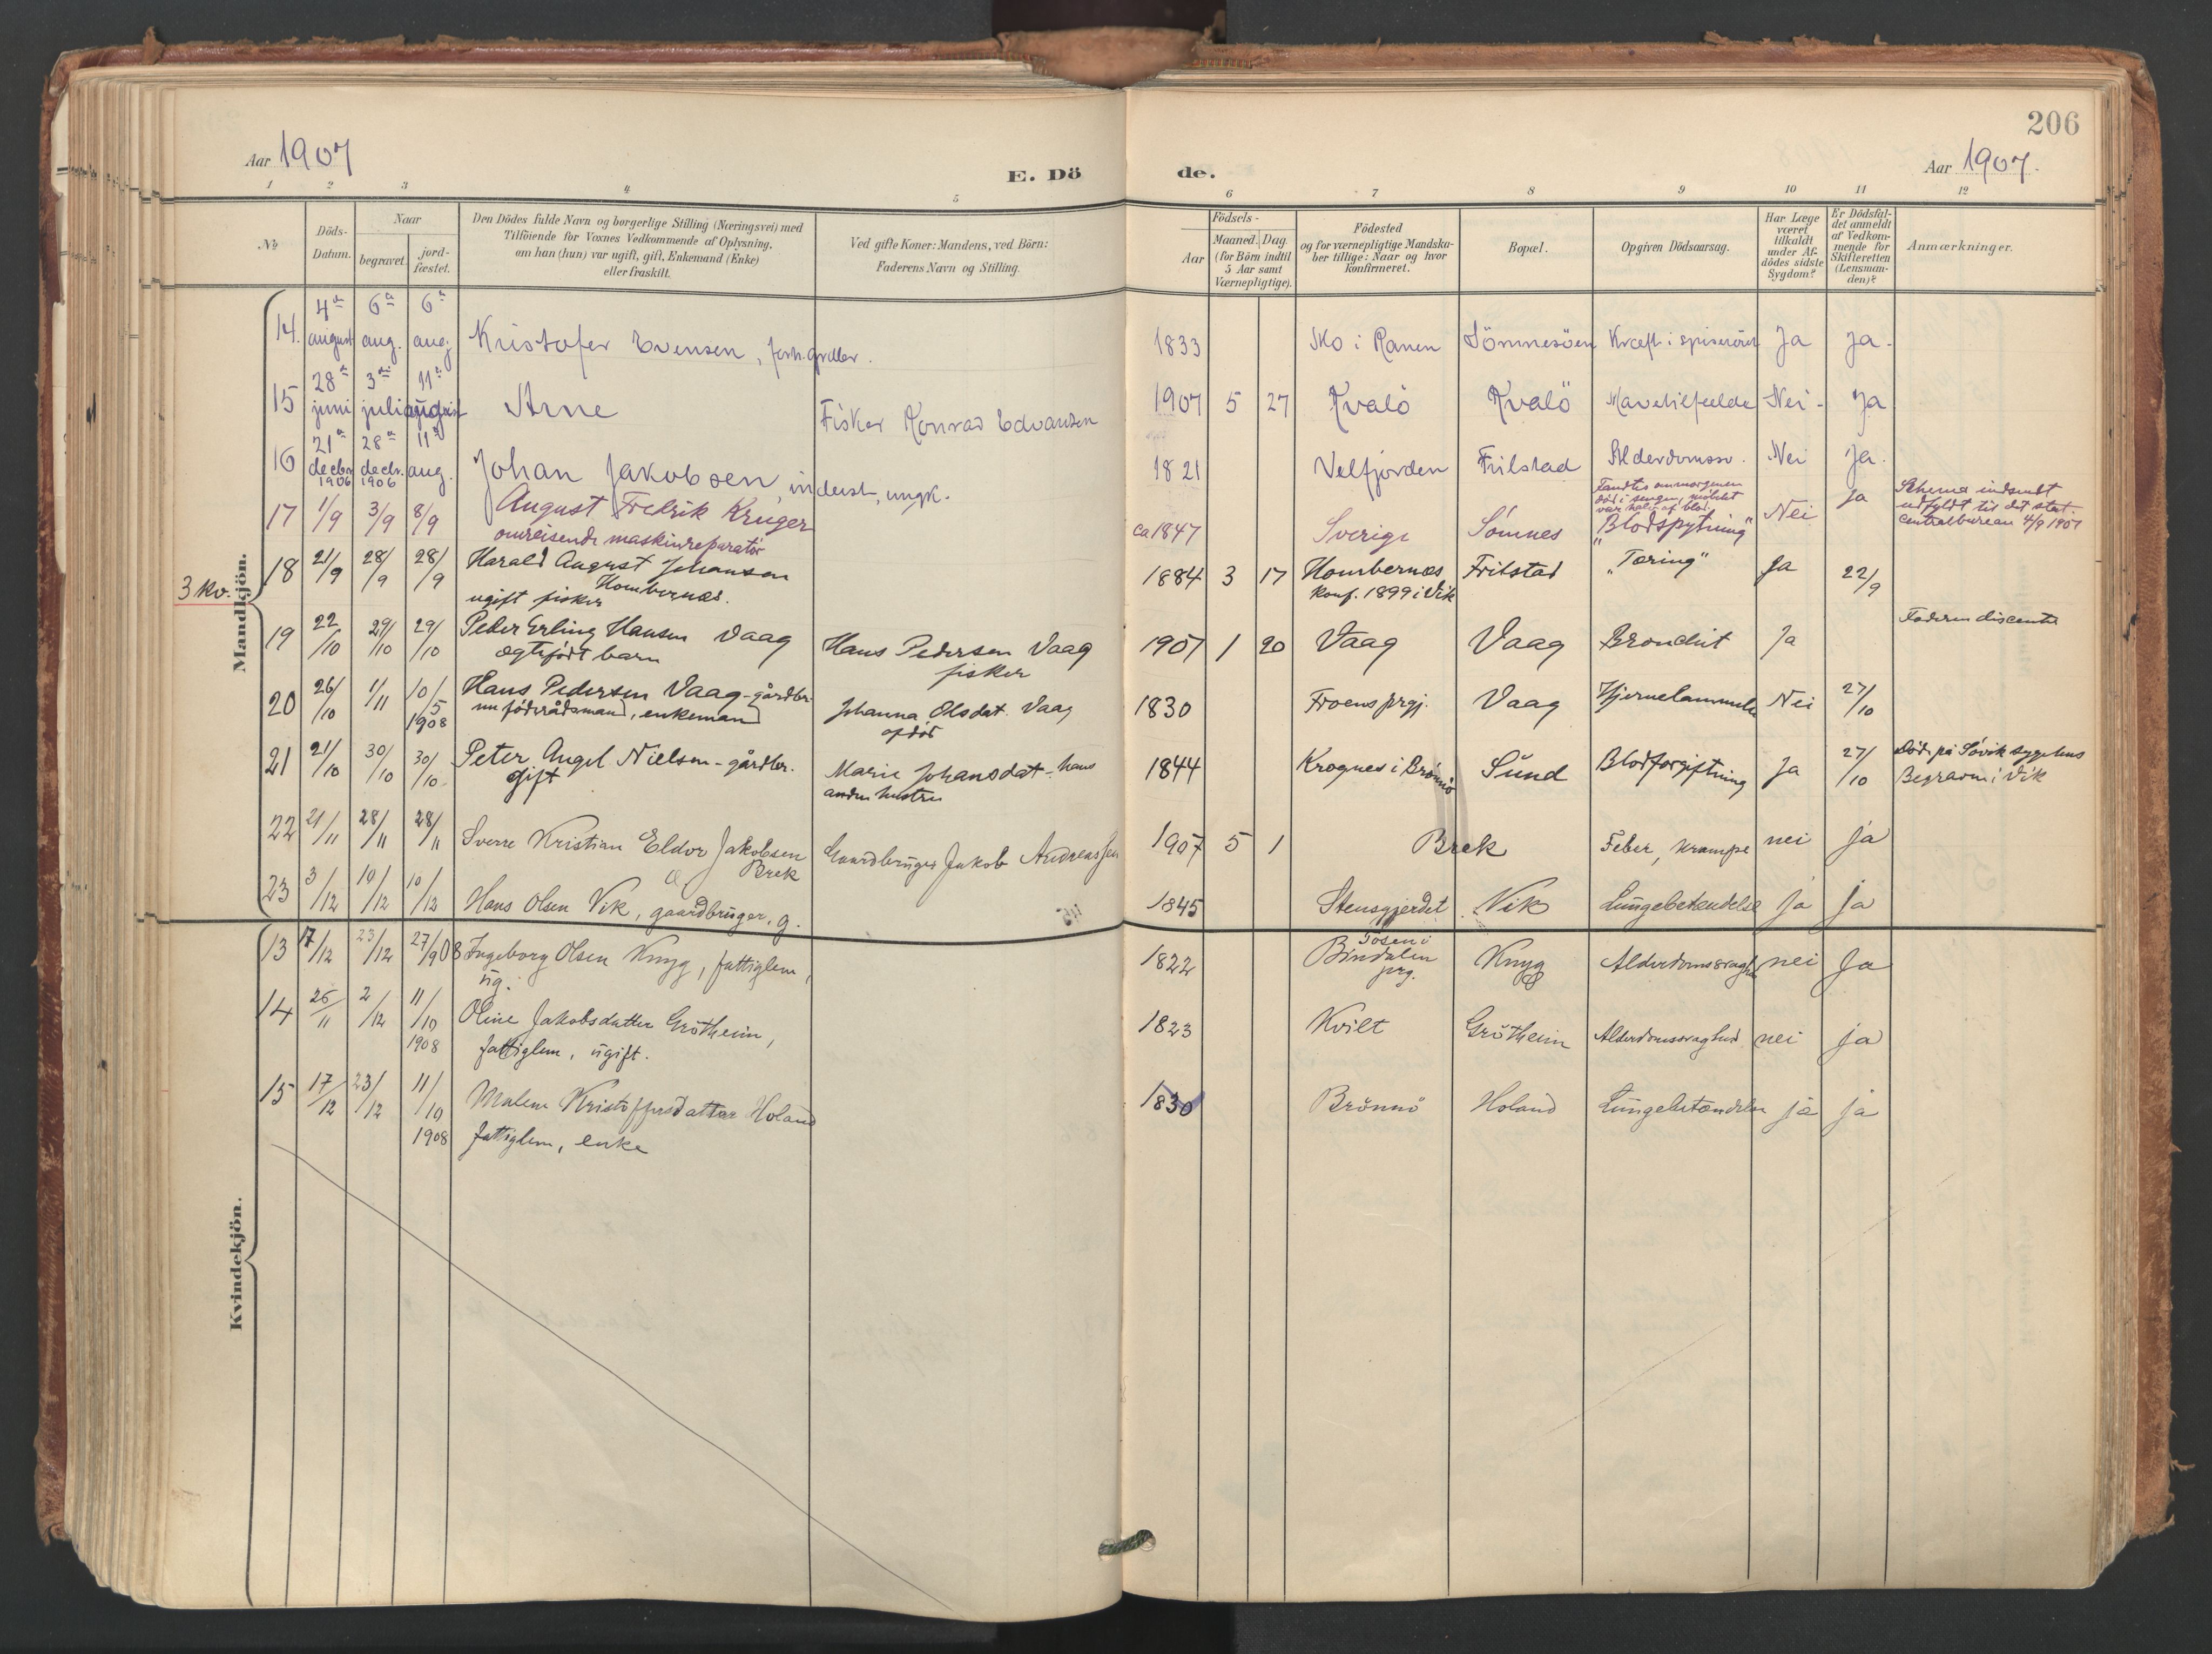 206
Aar 1907
E. Dö
de.
Aar 1907.
1 2 3 4 5 6 7 8 9 10 11 12
№
Döds-
Datum.
Naar
begravet.
jord-
fæstet.
Den Dödes fulde Navn og borgerlige Stilling (Næringsvei) med
Tilföiende for Voxnes Vedkommende af Oplysning,
om han (hun) var ugift, gift, Enkemand (Enke)
eller fraskilt.
Ved gifte Koner: Mandens, ved Börn:
Faderens Navn og Stilling.
Födsels-
Aar
Maaned. Dag
(for Börn indtil
5 Aar samt
Værnepligtige).
Födested
og for værnepligtige Mandska-
ber tillige: Naar og hvor
konfirmeret.
Bopæl.
Opgiven Dödsaarsag.
Har Læge
været
tilkaldt
under Af-
dödes sidste
Sygdom?
Er Dödsfal-
det anmeldt
af Vedkom-
mende for
Skifteretten
(Lensman-
den)?
Anmærkninger.
3 kv.
Mandkjön.
14. 4de august 6te aug. 6te aug Kristofer Evensen, forh. grdbr. 1833 Mo i Ranen Sömnesöen Kræft i spiserörret Ja Ja.
15 28de juni 3die juli 11te august Arne Fisker Konrad Edvardsen 1907 5 27 Kvalö Kvalö Mavetilfælde Nei - Ja
16 21de decbr. 1906 28de decbr. 1906 11te aug. Johan Jakobsen, inderst, ungk. 1821 Velfjorden Frilstad Alderdomssv. Nei Ja.
17 1/9 3/9 8/9 August Fredrik Kruger
omreisende maskinreparatör
ca 1847 Sverige Sömnes
Fandtes om morgenen
död i sengen, gulvet
var halv af blod.
"Blodspytning" Nei ja
Schema indsendt
udfyldt til det stat.
centralbureau 4/9 1907
18 21/9 28/9 28/9 Harald August Johansen
Hombernes.
ugift fisker
1884 3 17 Hombernes
konf. 1899 i Vik
Frilstad "Tæring" Ja 22/9
19 22/10 29/10 29/10 Peder Erling Hansen Vaag
ægtefödt barn
Hans Pedersen Vaag
fisker
1907 1 20 Vaag Vaag Bronchit Ja
Faderen dissenter
20 26/10 1/11 10/5 1908 Hans Pedersen Vaag - gårdbr.
nu föderådsmand, enkemand
Johanna Olsdat. Vaag
afdöd
1830 Froens prgj. Vaag Hjernelammelse Nei 27/10
21 21/10 30/10 30/10 Peter Angel Nielsen - gårdbr.
gift
Marie Johansdat - hans
anden hustru
1844 Krognes i Brönnö Sund Blodforgiftning Ja 27/10
Död på Sövik sygehus
Begraven i Vik
22 21/11 28/11 28/11 Sverre Kristian Eldor Jakobsen
Brek
Gaardbruger Jakob Andreassen
1907 5 1 Brek Feber, krampe nei ja
23 3/12 10/12 10/12 Hans Olsen Vik, gaardbruger, g.
1845 Stensgjerdet Vik Lungebetændelse ja ja
Kvindekjön.
13 17/12 23/12 27/9 08 Ingeborg Olsen Knyg, fattiglem,
ug.
1822 Tosen i
Bindalen
prg.
Knyg Alderdomssvaghed nei Ja
14 26/11 2/12 11/10 1908 Oline Jakobsdatter Grötheim,
fattiglem, ugift.
1823 Kvilt Grötheim Alderdomssvaghed nei ja
15 17/12 23/12 11/10 1908 Malene Kristoffersdatter Holand
fattiglem, enke
1830 Brönnö Holand Lungebetændelse ja ja